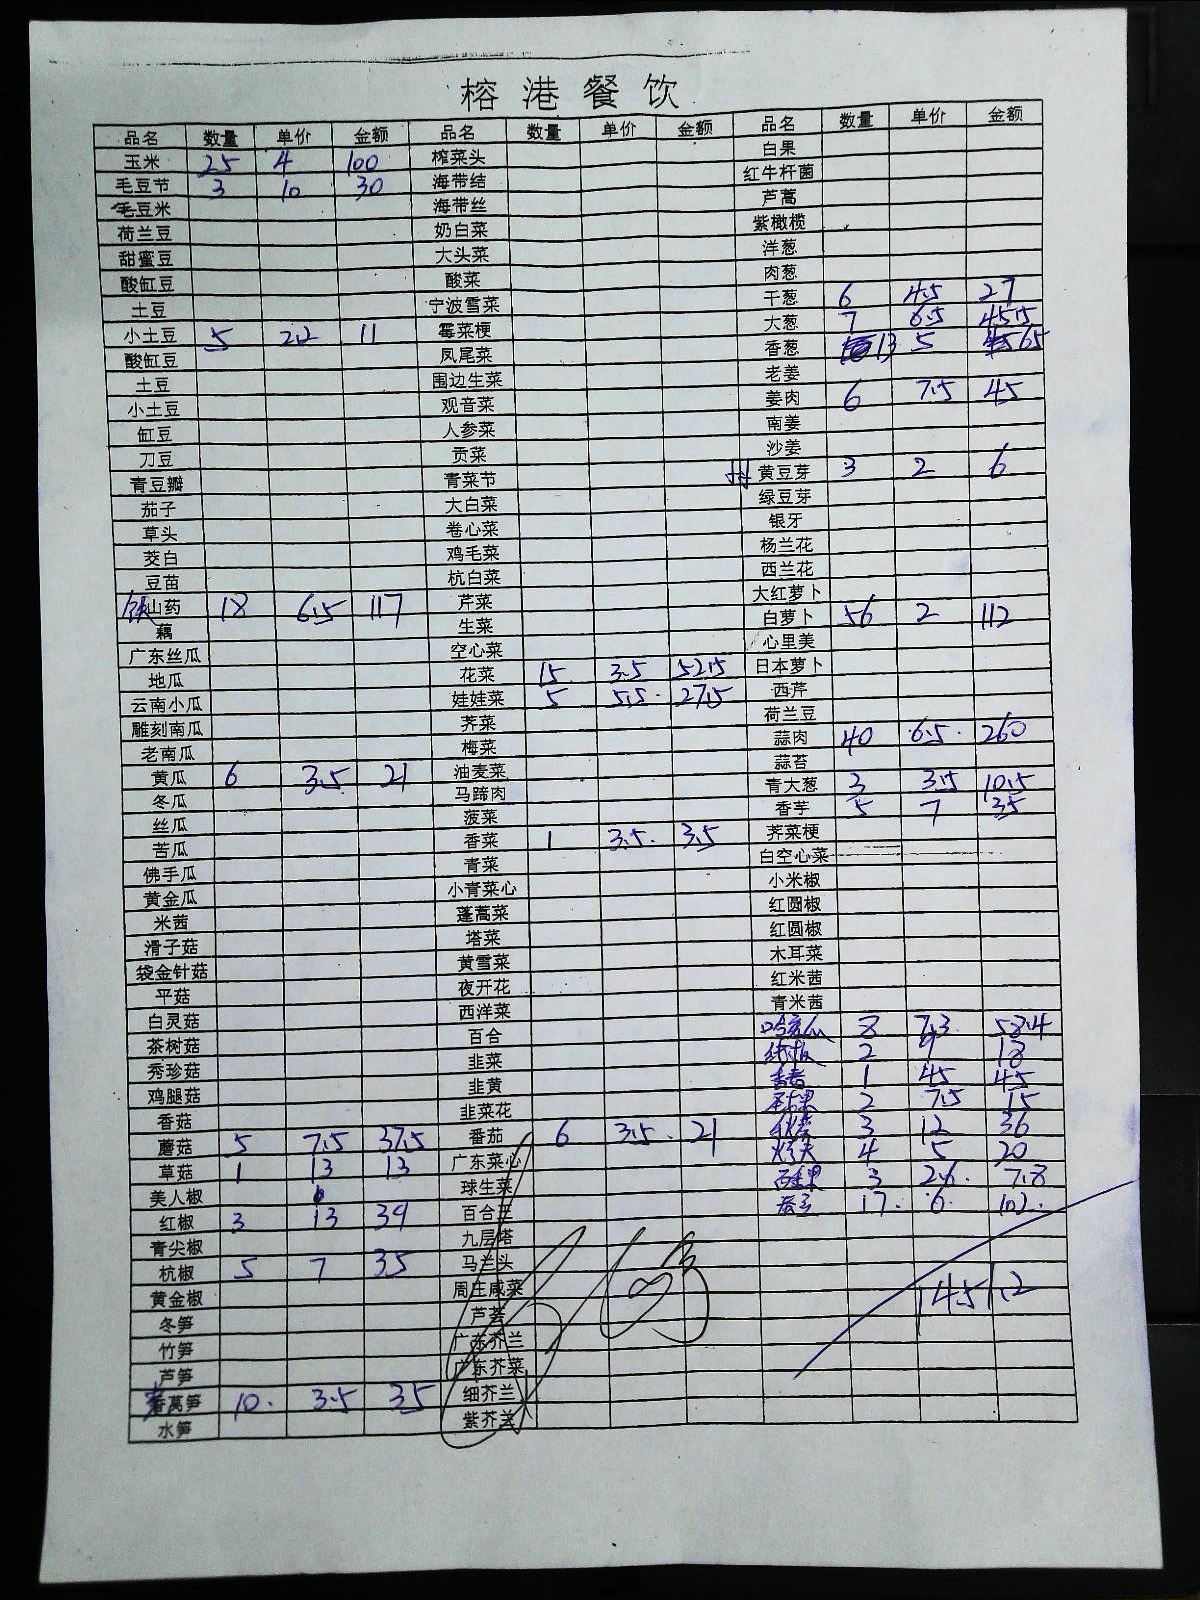 榕港餐饮
品名 数量 单价 金额 品名 数量 单价 金额 品名 数量 单价 金额
玉米 25 4 100 榨菜头 白果
毛豆节 3 10 30 海带结 红牛杆菌
毛豆米 海带丝 芦蒿
荷兰豆 奶白菜 紫橄榄
甜蜜豆 大头菜 洋葱
酸缸豆 酸菜 肉葱
土豆 宁波雪菜 干葱 6 4.5 27
小土豆 5 2.2 11 霉菜梗 大葱 7 6.5 45.5
酸缸豆 凤尾菜 香葱 13 5 65
土豆 围边生菜 老姜
小土豆 观音菜 姜肉 6 7.5 45
缸豆 人参菜 南姜
刀豆 贡菜 沙姜
青豆瓣 青菜节 黄豆芽 3 2 6
茄子 大白菜 绿豆芽
草头 卷心菜 银牙
茭白 鸡毛菜 杨兰花
豆苗 杭白菜 西兰花
铁山药 18 6.5 117 芹菜 大红萝卜
藕 生菜 白萝卜 56 2 112
广东丝瓜 空心菜 心里美
地瓜 花菜 15 3.5 52.5 日本萝卜
云南小瓜 娃娃菜 5 5.5 27.5 西芹
雕刻南瓜 荠菜 荷兰豆
老南瓜 梅菜 蒜肉 40 6.5 260
黄瓜 6 3.5 21 油麦菜 蒜苔
冬瓜 马蹄肉 青大葱 3 3.5 10.5
丝瓜 菠菜 香芋 5 7 35
苦瓜 香菜 1 3.5 3.5 荠菜梗
佛手瓜 青菜 白空心菜
黄金瓜 小青菜心 小米椒
米茜 蓬蒿菜 红圆椒
滑子菇 塔菜 红圆椒
袋金针菇 黄雪菜 木耳菜
平菇 夜开花 红米茜
白灵菇 西洋菜 青米茜
茶树菇 百合 哈密瓜 8 7.3 58.4
秀珍菇 韭菜 2 9 18
鸡腿菇 韭黄 1 45 45
香菇 韭菜花 苹果 2 7.5 15
蘑菇 5 7.5 37.5 番茄 6 3.5 21 3 12 36
草菇 1 13 13 广东菜心 4 5 20
美人椒 球生菜 3 2.6 7.8
红椒 3 13 39 百合王 17 6 102
青尖椒 九层塔
杭椒 5 7 35 马兰头
黄金椒 周庄咸菜 1451.2
冬笋 芦荟
竹笋 广东芥兰
芦笋 广东芥菜
莴笋 10 3.5 35 细芥兰
水笋 紫芥兰